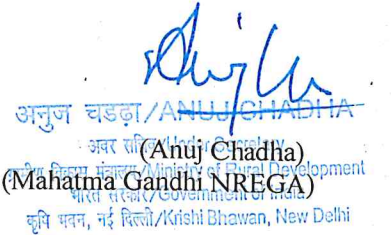 अनुज चडढ़ा/ANUJ CHADHA
अवर सचिव/Under Secretary
(Anuj Chadha)
मंत्रालय/Ministry of Rural Development
(Mahatma Gandhi NREGA)
भारत सरकार/Government of India
कृषि भवन, नई दिल्ली/Krishi Bhawan, New Delhi